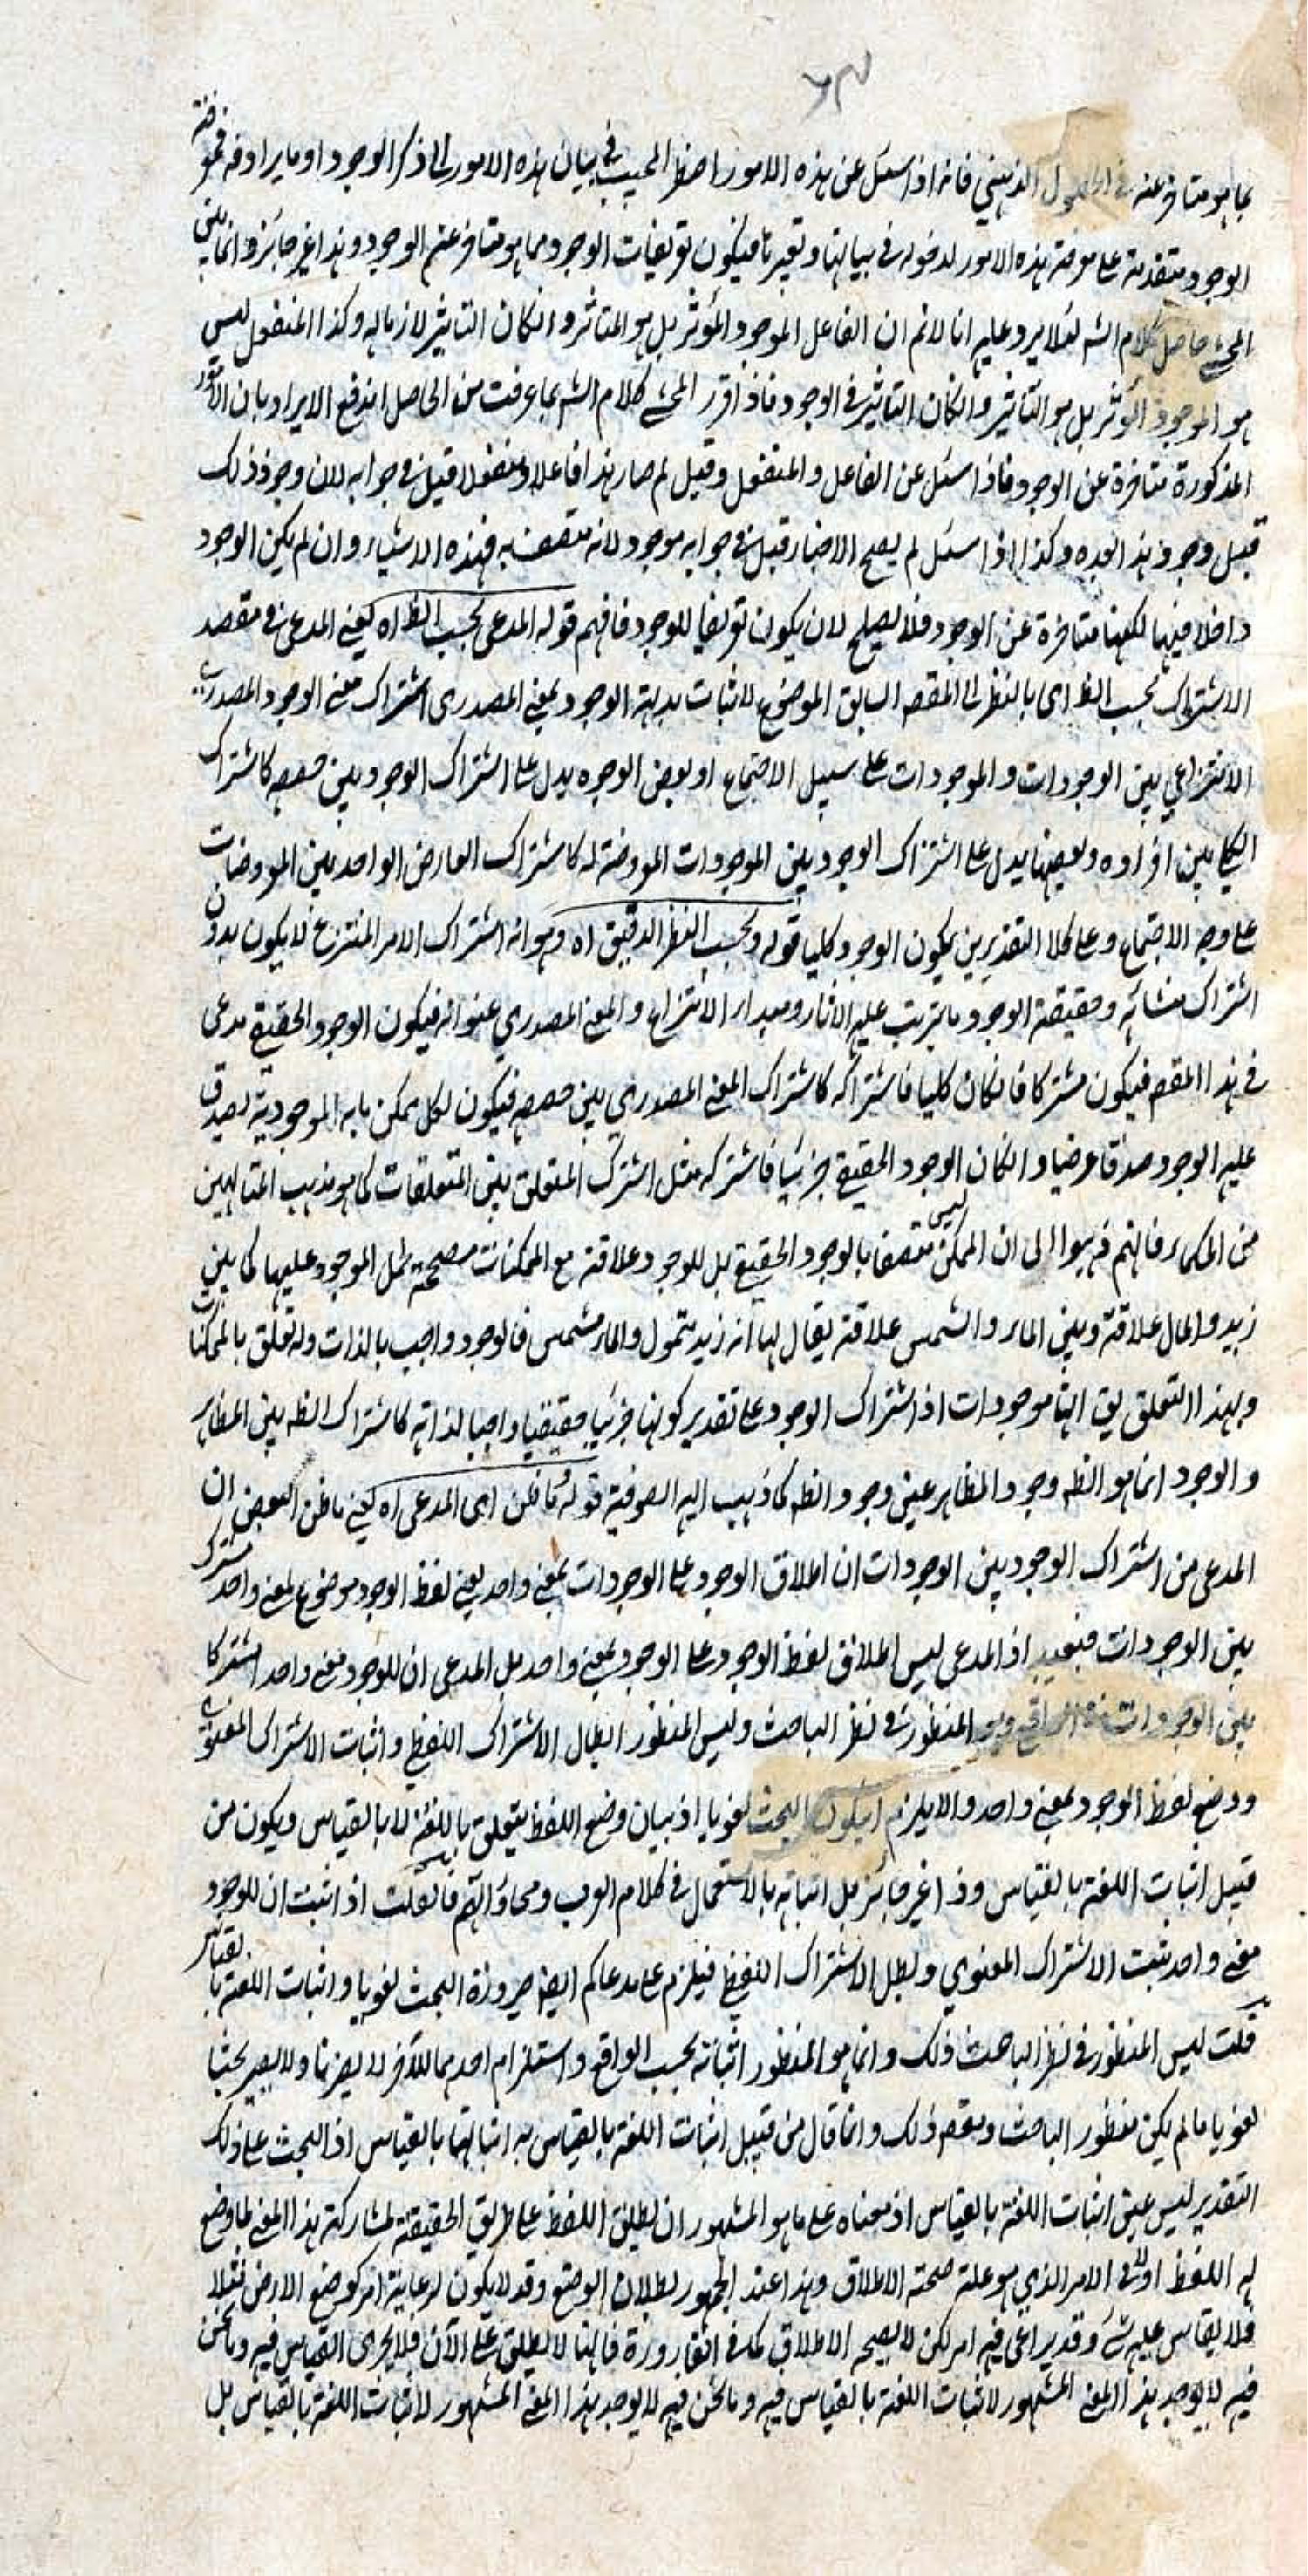 بما هو متاخر عنه في الحصول الذهني فانه اذا سئل عن هذه الامور اضطر المجيب في بيان هذه الامور الى ذكر الوجود او ما يرادفه فمعرفته
الوجود متقدمة على معرفة هذه الامور لدخوله في بيانها وتعريفها فيكون تعريفات الوجود مما هو متاخر عنه الوجود وهذا غير جائز وانما بنى
المحشي حاصل كلام الشه لئلا يرد عليه انا لا نم ان الفاعل الموجود المؤثر بل هو المتاثر وانكان التاثير لازما له وكذا المنفعل ليس
هو الموجود المؤثر بل هو التاثير وانكان التاثير في الوجود فاذا قرر المحشي كلام الشه بما عرفت من الحاصل اندفع الايراد بان الامور
المذكورة متاخرة عن الوجود فاذا سئل عن الفاعل والمنفعل وقيل لم صار هذا فاعلا ومنفعلا قيل في جوابه لان وجود ذلك
قبل وجود هذا بعده وكذا اذا سئل لم يصح الاخبار قيل في جوابه موجود لانه متصف به فهذه الاشياء وان لم يكن الوجود
داخلا فيها لكنها متاخرة عن الوجود فلا يصلح لان يكون تعريفا للوجود فافهم قوله المدعى بحسب النظر اه يعني المدعى في مقصد
الاشتراك بحسب النظر اى بالنظر الى المقصد السابق الموضوع لاثبات بديهة الوجود بمعنى المصدرى اشتراك معنى الوجود المصدرى
الانتزاعي بين الوجودات والموجودات على سبيل الاجتماع او بعض الوجوه يدل على اشتراك الوجود بين حصصه كاشتراك
الكلي بين افراده وبعضها يدل على اشتراك الوجود بين الموجودات المعروضة له كاشتراك العارض الواحد بين المعروضات
على وجه الاجتماع وعلى كلا التقديرين يكون الوجود كليا قوله وبحسب النظر الدقيق اه وهو انه اشتراك الامر المنتزع لا يكون بدون
اشتراك منشائه وحقيقة الوجود ما يترتب عليه الاثار ومبدا الانتزاع والمعنى المصدري عنوانه فيكون الوجود الحقيقي مدعى
في هذا المقصد فيكون مشتركا فانكان كليا فاشتراكه كاشتراك المعنى المصدري بين حصصه فيكون لكل ممكن ما به الموجودية يصدق
عليه الوجود صدقا عرضيا وانكان الوجود الحقيقي جزئيا فاشتراكه مثل اشتراك المتعلق بين المتعلقات كما هو مذهب المتالهين
من الحكماء فانهم ذهبوا الى ان الممكن ليس متصفا بالوجود الحقيقي بل للوجود علاقة مع الممكنات مصححة لحمل الموجود عليها كما بين
زيد والمال علاقة وبين الماء والشمس علاقة يقال بها انه زيد متمول والماء مشمس فالوجود واجب بالذات وله تعلق بالممكنات
ولهذا التعلق يق انها موجودات اذ اشتراك الوجود على تقدير كونها جزئيا حقيقيا واجبا لذاته كاشتراك الظه بين المظاهر
والوجود انما هو الظه وجود المظاهر عين وجود الظه كما ذهب اليه الصوفية قوله فما ظن اى المدعى اه يعني ما ظن البعض ان
المدعى من اشتراك الوجود بين الوجودات ان اطلاق الوجود على الوجودات بمعنى واحد يعني لفظ الوجود موضوع لمعنى واحد مشترك
بين الوجودات فبعيد اذ المدعى ليس اطلاق لفظ الوجود على الوجود بمعنى واحد بل المدعى ان للوجود معنى واحد اشتركا
بين الوجودات في الواقع وهو المنظور في نظر الباحث وليس المنظور ابطال الاشتراك اللفظي واثبات الاشتراك المعنوي
ووضع لفظ الوجود بمعنى واحد والا يلزم ان يكون البحث لغويا اذ بيان وضع اللفظ يتعلق باللغة لا بالقياس ويكون من
قبيل اثبات اللغة بالقياس وذا غير جائز بل اثباته بالاستعمال في كلام العرب ومحاوراتهم فان قلت اذا ثبت ان للوجود
معنى واحد يثبت الاشتراك المعنوي وبطل الاشتراك اللفظي فيلزم على مدعاكم ايضا صيرورة البحث لغويا واثبات اللغة بالقياس
قلت ليس المنظور في نظر الباحث ذلك وانما هو المنظور اثباته بحسب الواقع واستلزام احدهما للآخر لا يضرنا ولا يصير بحثا
لغويا ما لم يكن منظور الباحث وبقصد ذلك وانما قال من قبيل اثبات اللغة بالقياس به اثباتها بالقياس اذ البحث على ذلك
التقدير ليس عين اثبات اللغة بالقياس اذ معناه على ما هو المشهور ان يطلق اللفظ على طريق الحقيقة لمشاركة هذا المعنى لما وضع
له اللفظ اولا في الامر الذي هو علة صحة الاطلاق وهذا عند الجمهور لبطلان الوضع وقد لا يكون لرعاية امر كوضع الارض مثلا
فلا يقاس عليه شئ وقد يراعى فيه امر لكن لا يصح الاطلاق كما في القارورة فانها لا يطلق على الآن فلا يجرى القياس فيه وما نحن
فيه لا يوجد هذا المعنى المشهور لاثبات اللغة بالقياس فيه وما نحن فيه لا يوجد هذا المعنى المشهور لاثبات اللغة بالقياس بل